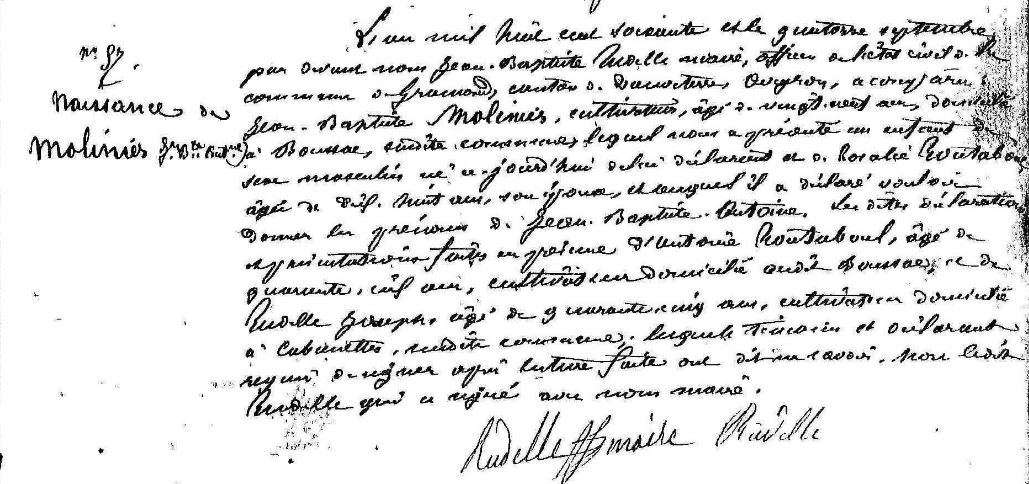 nº 57.
Naissance de
Moliniés Jn. Bte. Ant.ne
L'an mil huit cent soixante et le quatorze septembre,
par devant nous Jean-Baptiste Rudelle maire, officier de l'état civil de la
commune de Gramond, canton de Sauveterre, Aveyron, a comparu
Jean-Baptiste Moliniés, cultivateur, âgé de vingt-neuf ans, domicilié
à Boussac, susdite commune, lequel nous a présenté un enfant du
sexe masculin né aujourd'hui de lui déclarant et de Rosalie Routaboul
âgée de dix-huit ans, son épouse, et auquel il a déclaré vouloir
donner les prénoms de Jean-Baptiste-Antoine. Les dites déclaration
et présentation faites en présence d'Antoine Routaboul, âgé de
quarante- ans, cultivateur domicilié audit Boussac, et de
Rudelle Joseph, âgé de quarante-cinq ans, cultivateur domicilié
à Cabanettes, susdite commune, lesquels témoins et déclarant
requis de signer après lecture faite ont dit ne savoir, non ledit
Rudelle qui a signé avec nous maire.
Rudelle maire Rudelle